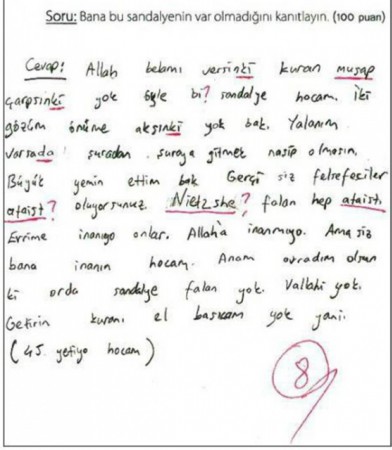 Soru: Bana bu sandalyenin var olmadığını kanıtlayın. (100 puan)
Cevap: Allah belamı versinki kuran musap
çarpsinki yok öyle bi? sandalye hocam. İki
gözüm önüme aksınki yok bak. Yalanım
varsada suradan suraya gitmek nasip olmasın.
Büyük yemin ettim bak Gerçi siz felsefeciler
ataist? oluyorsunuz. Nietzshe? falan hep ataist.
Evrime inanıyo onlar. Allah'a inanmıyo. Ama siz
bana inanın hocam. Anam avradım olsun
ki orda sandalye falan yok. Vallahi yok.
Getirin kuranı el basıcam yok yani.
(45 yetiyo hocam)
8